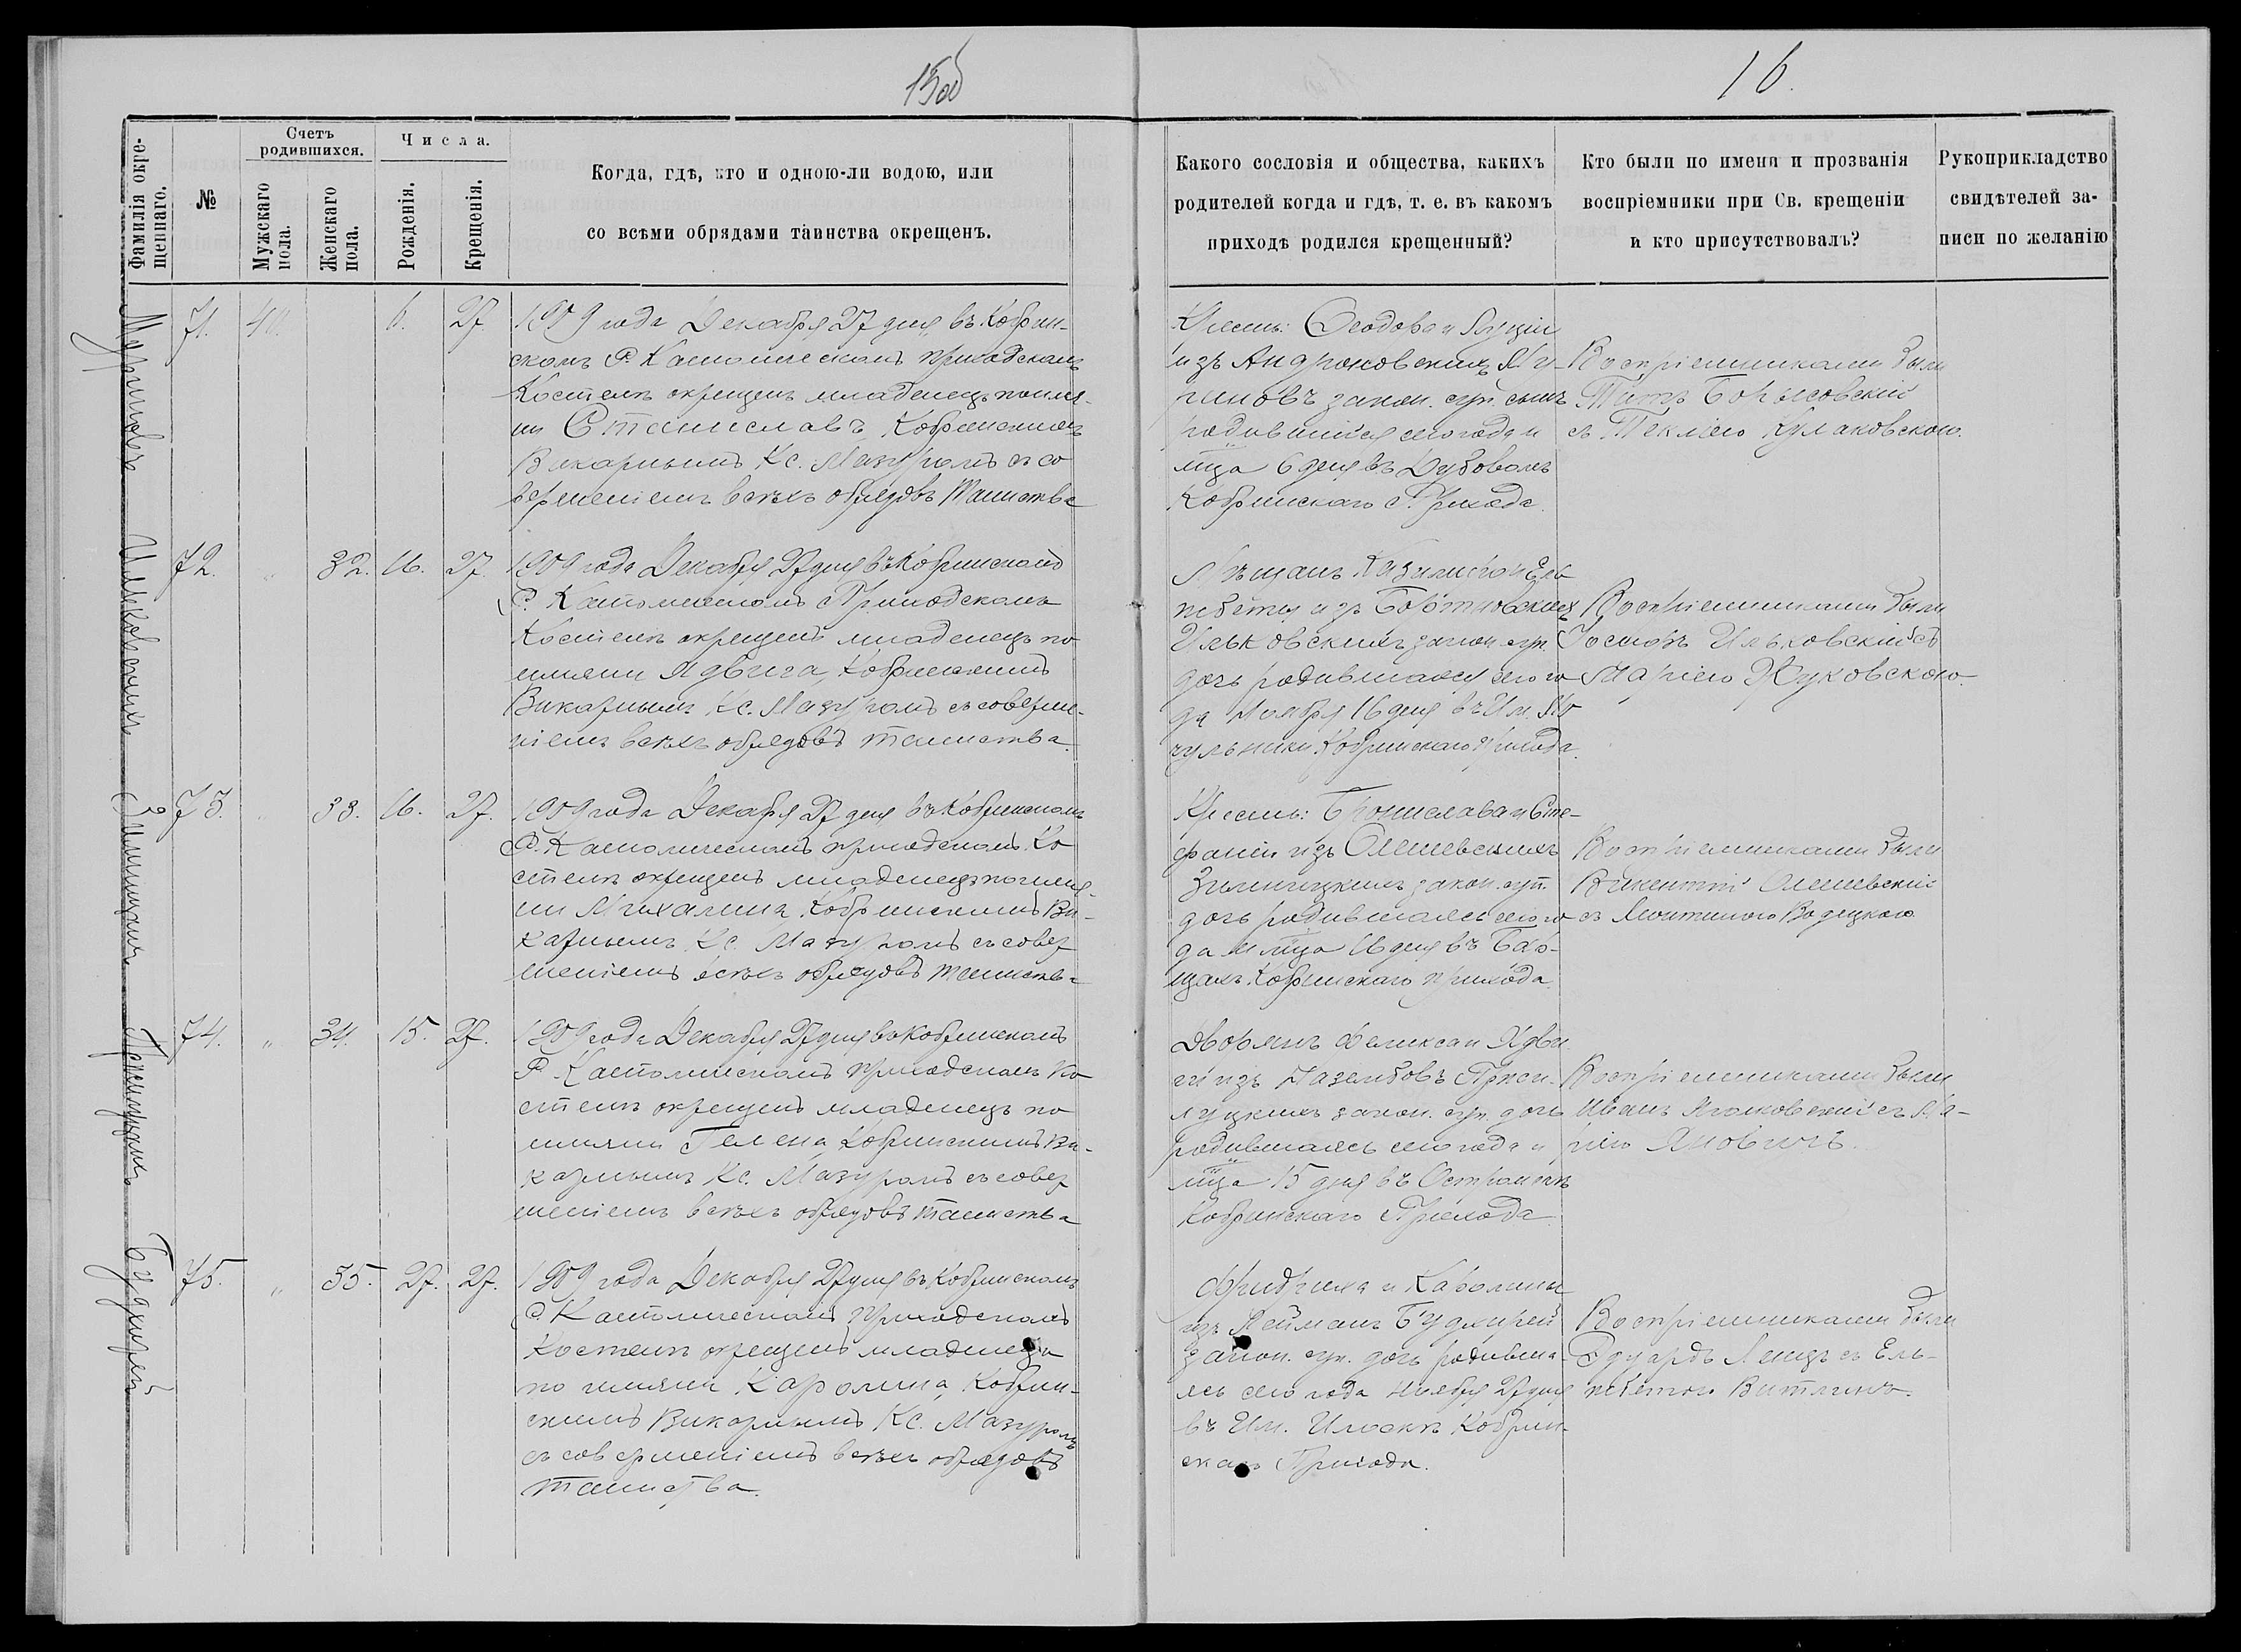 15об
16.
Фамилія окре-
щеннаго.
№
Счетъ
родившихся.
Мужскаго
пола.
Женскаго
пола.
Числа.
Рожденія.
Крещенія.
Когда, гдѣ, кто и одною-ли водою, или
со всѣми обрядами таинства окрещенъ.
Какого сословія и общества, какихъ
родителей когда и гдѣ, т. е. въ какомъ
приходѣ родился крещенный?
Кто были по имени и прозванія
воспріемники при Св. крещеніи
и кто присутствовалъ?
Рукоприкладство
свидѣтелей за-
писи по желанію
71.
40.
6.
27
1909 года Декабря 27 дня въ Кобрин-
скомъ Р. Католическомъ приходскомъ
Костелѣ окрещенъ младенецъ по име-
ни Станиславъ Кобринскимъ
Викарнымъ Кс. Мазуромъ съ со
вершеніемъ всѣхъ обрядовъ Таинства
Крестьянъ: Ѳеодора и Луціи
изъ Андроковскихъ
закон. суп. сынъ
родившійся сего года и
мца 6 дня въ Дубовомъ
Кобринскаго Прихода.
Воспріемниками были
Титъ Борисовскій
съ Теклею Кулаковскою.
72.
"
32.
16.
27.
1909 года Декабря 27 дня въ Кобринскомъ
Р. Католическомъ Приходскомъ
Костелѣ окрещенъ младенецъ по
имени Ядвига, Кобринскимъ
Викарнымъ Кс. Мазуромъ съ соверше-
ніемъ всѣхъ обрядовъ таинства.
Мѣщанъ Казиміра и Ели-
заветы изъ Бортновскихъ
Ильковскихъ закон. суп.
дочь родившаяся сего го
да Ноября 16 дня въ Им.
Кобринскаго Прихода.
Воспріемниками были
Іосифъ Ильковскій съ
Маріею Жуковскою.
73.
"
33.
16.
27.
1909 года Декабря 27 дня въ Кобринскомъ
Р. Католическомъ приходскомъ Ко
стелѣ окрещенъ младенецъ по име-
ни Михалина Кобринскимъ Ви-
карнымъ Кс. Мазуромъ съ совер
шеніемъ всѣхъ обрядовъ таинства
Крестьянъ: Бронислава и Сте-
фаніи изъ Олешевскихъ
закон. суп.
дочь родившаяся сего го
да и мца 16 дня въ
Кобринскаго прихода.
Воспріемниками были
Викентій Олешевскій
74.
"
34.
15.
27.
1909 года Декабря 27 дня въ Кобринскомъ
Р. Католическомъ приходскомъ Ко
стелѣ окрещенъ младенецъ по
имени Гелена, Кобринскимъ Ви-
карнымъ Кс. Мазуромъ съ совер
шеніемъ всѣхъ обрядовъ таинства
Дворянъ Феликса и Ядви
ги изъ
закон. суп. дочь
родившаяся сего года и
мца 15 дня въ
Кобринскаго Прихода.
Воспріемниками были
Иванъ съ Ма-
ріею Яновичъ.
75.
"
35.
27.
27.
1909 года Декабря 27 дня въ Кобринскомъ
Р. Католическомъ Приходскомъ
Костелѣ окрещенъ младенецъ
по имени Каролина, Кобрин-
скимъ Викарнымъ Кс. Мазуромъ
съ совершеніемъ всѣхъ обрядовъ
таинства.
Фридриха и Каролины
изъ Нейманъ
закон. суп. дочь родивша-
ясь сего года Ноября 27 дня
въ Им. Илоскѣ Кобрин-
скаго Прихода.
Воспріемниками были
Эдуардъ съ Ели-
заветою